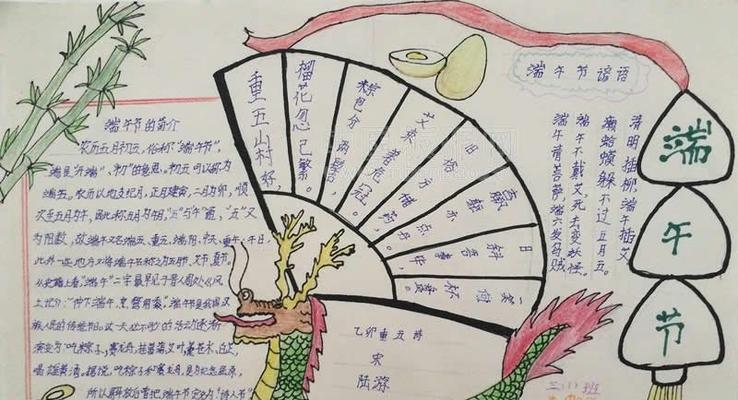 端午节的简介
农历五月初五，俗称"端午节"，
端是"开端"、"初"的意思。初五可以称为
端五。农历以地支纪月，正月建寅，二月为卯，顺
次至五月为午，因此称五月为午月，"五"与"午"通，"五"又
为阳数，故端午又名端五、重五、端阳、中天、重午、午日，
此外一些地方又将端午节称为五月节、艾节、夏节。
从史籍上看，"端午"二字最早见于晋人周处《风
土记》："仲下端午，烹鹜用粟"。端午节是我国汉
族人民的传统节日。这一天必不可少的活动逐渐
演变为"吃粽子，赛龙舟，挂菖蒲、艾叶，薰苍术、白芷，
喝雄黄酒。据说，吃粽子和赛龙舟，是为纪念屈原，
所以解放后曾把端午节定为"诗人节"
重五山村好，
榴花忽已繁。
粽包分两髻，
艾束著危冠。
旧俗方储药，
羸躯亦点丹。
日斜吾事毕，
一笑向杯盘。
乙卯重五诗
宋
陆游
端午节谚语
清明插柳，端午插艾
癞蛤蟆躲不过五月五。
端午不戴艾，死去变妖怪。
端午请菩萨，端六发乌贼
端
午
节
三（1）班